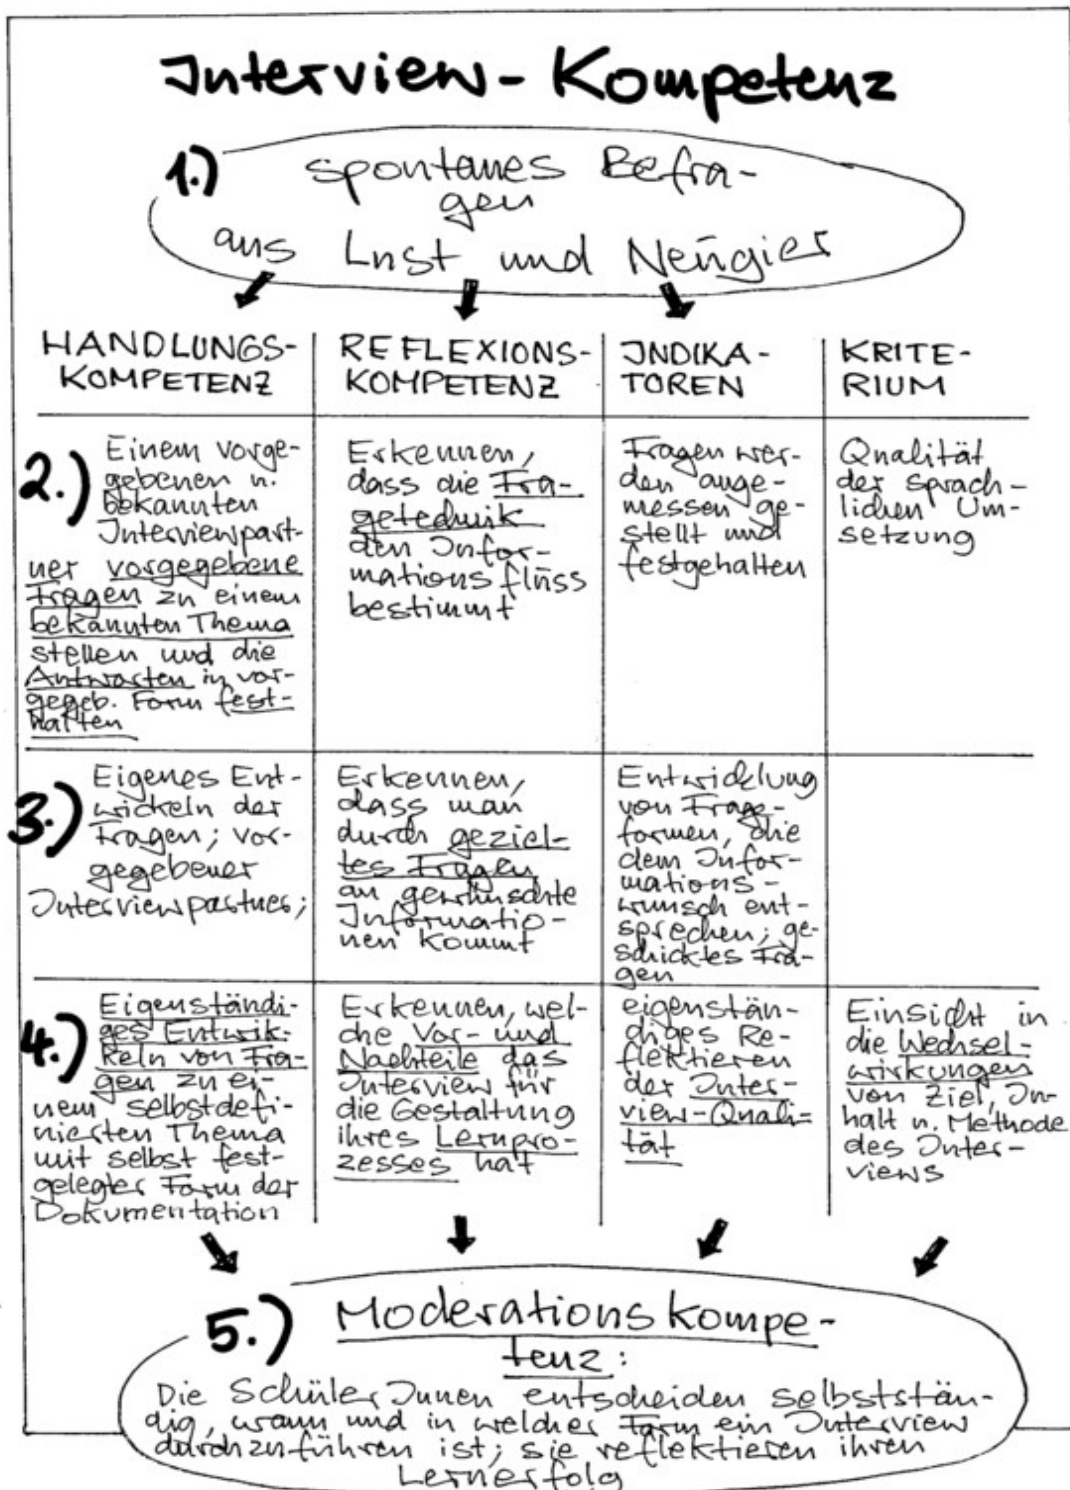 Interview-Kompetenz
1.) spontanes Befra-
gen
aus Lust und Neugier
HANDLUNGS-
KOMPETENZ
REFLEXIONS-
KOMPETENZ
INDIKA-
TOREN
KRITE-
RIUM
2.) Einem vorge-
gebenen u.
bekannten
Interviewpart-
ner vorgegebene
Fragen zu einem
bekannten Thema
stellen und die
Antworten in vor-
gegeb. Form fest-
halten
Erkennen,
dass die Fra-
getechnik
den Infor-
mationsfluss
bestimmt
Fragen wer-
den ange-
messen ge-
stellt und
festgehalten
Qualität
der sprach-
lichen Um-
setzung
3.) Eigenes Ent-
wickeln der
Fragen; vor-
gegebener
Interviewpartner;
Erkennen,
dass man
durch geziel-
tes Fragen
an gewünschte
Informatio-
nen kommt
Entwicklung
von Frage-
formen, die
dem Infor-
mations-
wunsch ent-
sprechen; ge-
schicktes Fra-
gen
4.) Eigenständi-
ges Entwik-
keln von Fra-
gen zu ei-
nem selbstdefi-
nierten Thema
mit selbst fest-
gelegter Form der
Dokumentation
Erkennen, wel-
che Vor- und
Nachteile das
Interview für
die Gestaltung
ihres Lernpro-
zesses hat
eigenstän-
diges Re-
flektieren
der Inter-
view-Quali-
tät
Einsicht in
die Wechsel-
wirkungen
von Ziel, In-
halt u. Methode
des Inter-
views
5.) Moderationskompe-
tenz:
Die SchülerInnen entscheiden selbststän-
dig, wann und in welcher Form ein Interview
durchzuführen ist; sie reflektieren ihren
Lernerfolg